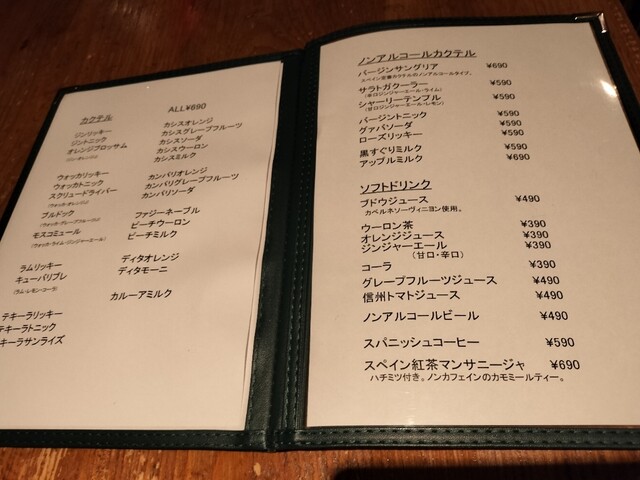 カクテル ALL¥690
ジンリッキー
ジントニック
オレンジブロッサム
(ジン・オレンジ)
ウォッカリッキー
ウォッカトニック
スクリュードライバー
(ウォッカ・オレンジ)
ブルドック
(ウォッカ・グレープフルーツ)
モスコミュール
(ウォッカ・ライム・ジンジャーエール)
ラムリッキー
キューバリブレ
(ラム・レモン・コーラ)
テキーラリッキー
テキーラトニック
キーラサンライズ
カシスオレンジ
カシスグレープフルーツ
カシスソーダ
カシスウーロン
カシスミルク
カンパリオレンジ
カンパリグレープフルーツ
カンパリソーダ
ファジーネーブル
ピーチウーロン
ピーチミルク
ディタオレンジ
ディタモーニ
カルーアミルク
ノンアルコールカクテル
バージンサングリア ¥690
スペイン定番カクテルのノンアルコールタイプ。
サラトガクーラー ¥590
(辛口ジンジャーエール・ライム)
シャーリーテンプル ¥590
(甘口ジンジャーエール・レモン)
バージントニック ¥590
グァバソーダ ¥590
ローズリッキー ¥590
黒すぐりミルク ¥590
アップルミルク ¥690
ソフトドリンク
ブドウジュース ¥490
カベルネソーヴィニヨン使用。
ウーロン茶 ¥390
オレンジジュース ¥390
ジンジャーエール ¥390
(甘口・辛口)
コーラ ¥390
グレープフルーツジュース ¥490
信州トマトジュース ¥490
ノンアルコールビール ¥490
スパニッシュコーヒー ¥590
スペイン紅茶マンサニージャ ¥690
ハチミツ付き。ノンカフェインのカモミールティー。